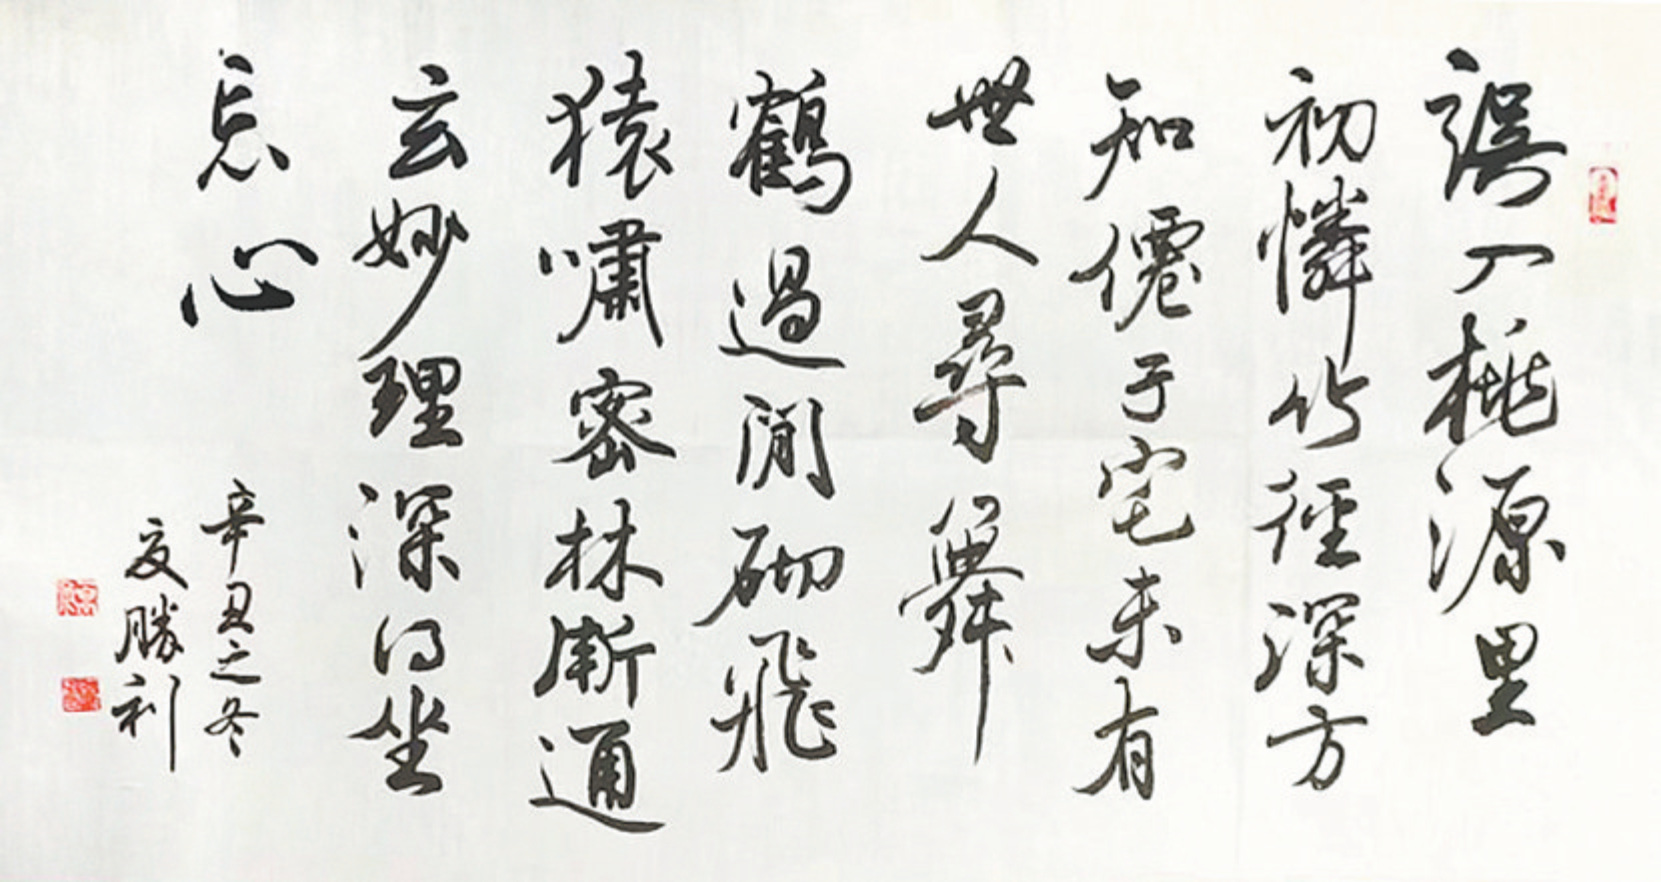 誤入桃源里
初憐竹徑深方
知僊子宅未有
世人尋舞
鶴過閒砌飛
猿嘯密林漸通
玄妙理深得坐
忘心
辛丑之冬
友勝利